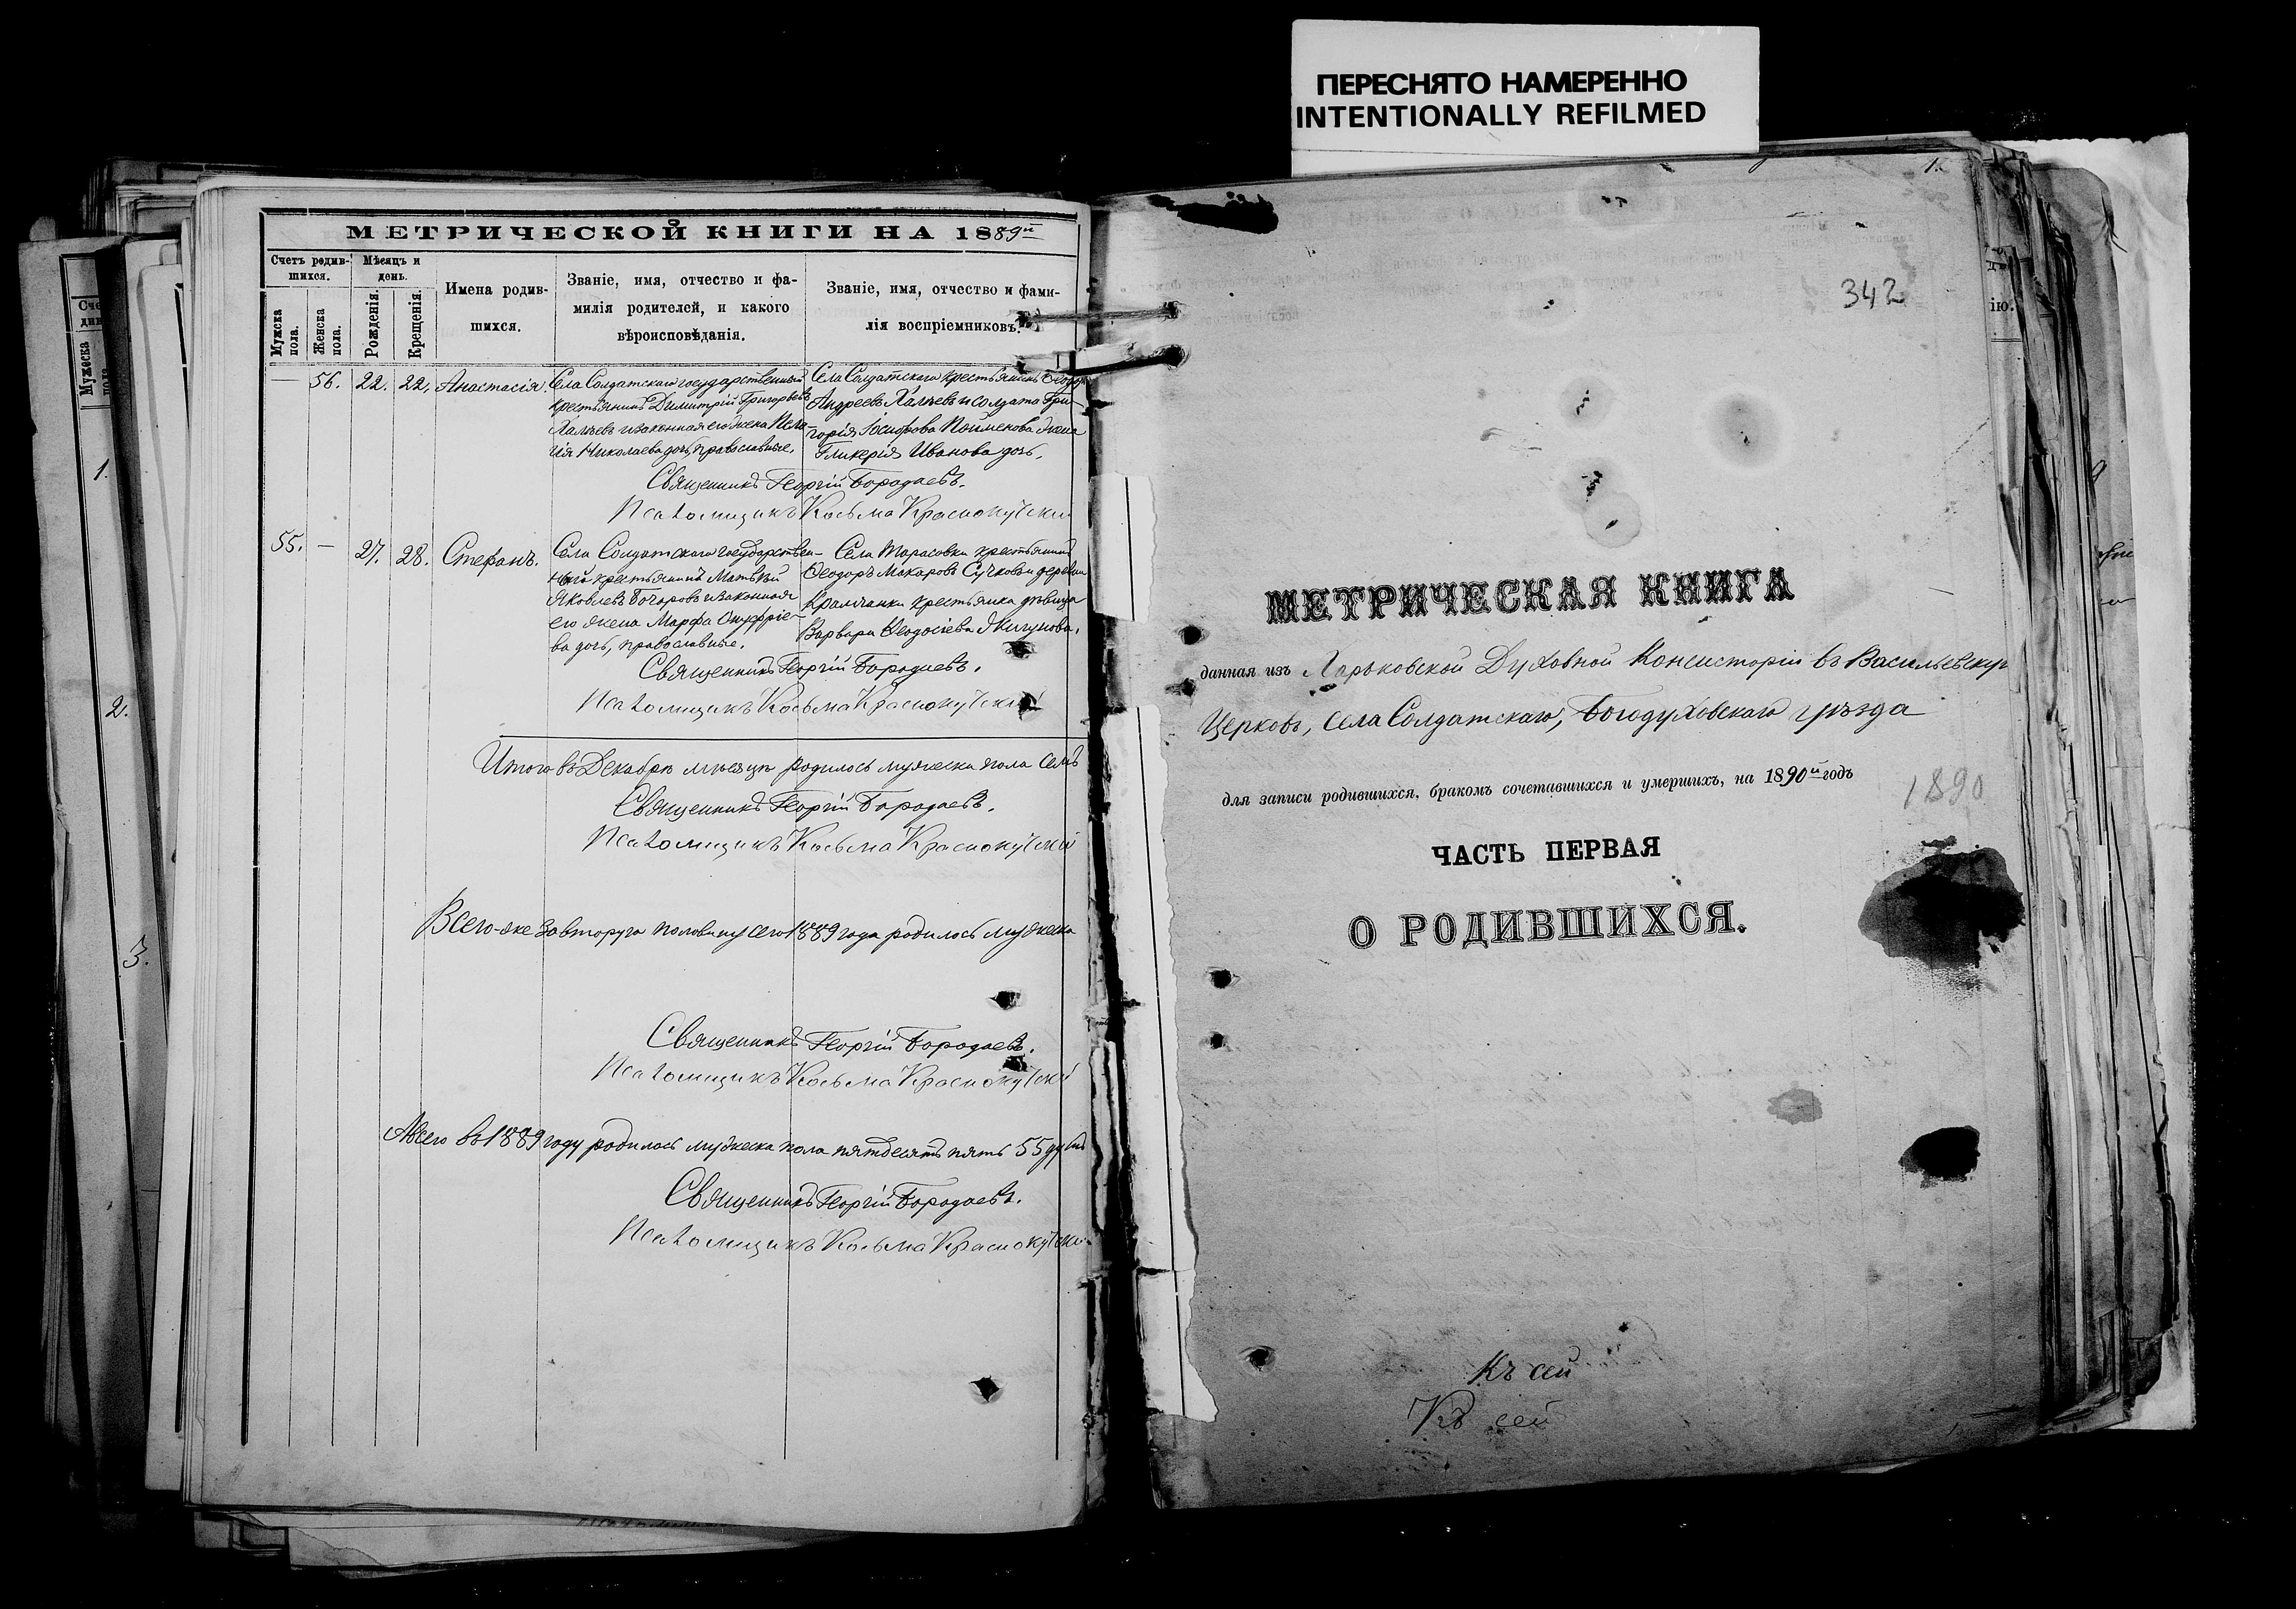 ПЕРЕСНЯТО НАМЕРЕННО
INTENTIONALLY REFILMED
МЕТРИЧЕСКОЙ КНИГИ НА 1889й
Счетъ родив-
шихся.
Мѣсяцъ и
день.
Имена родив-
шихся.
Званіе, имя, отчество и фа-
милія родителей, и какого
вѣроисповѣданія.
Званіе, имя, отчество и фами-
лія воспріемниковъ.
Мужска
пола.
Женска
пола.
Рожденія.
Крещенія.
— 56. 22. 22. Анастасія.
Села Солдатскаго государственный
крестьянинъ Димитрій Григорьевъ
и законная его жена Пела-
гія Николаева дочь, православные.
Села Солдатскаго крестьянинъ Ѳеодоръ
Андреевъ и солдата Гри-
горія жена
Гликерія Иванова дочь.
Священникъ Георгій Бородаевъ.
Псаломщикъ Косьма Краснокутскій
55. — 27. 28. Стефанъ.
Села Солдатскаго государствен-
ный крестьянинъ Матвѣй
Яковлевъ Бочаровъ и законная
его жена Марфа Онуфріе-
ва дочь, православные.
Села Тарасовки крестьянинъ
Ѳеодоръ Макаровъ Сучковъ и деревни
крестьянка дѣвица
Варвара Ѳеодосіева
Священникъ Георгій Бородаевъ.
Псаломщикъ Косьма Краснокутскій
Итого въ Декабрѣ мѣсяцѣ родилось мужеска пола семь
Священникъ Георгій Бородаевъ.
Псаломщикъ Косьма Краснокутскій
Всего-же за вторую половину сего 1889 года родилось мужеска
Священникъ Георгій Бородаевъ.
Псаломщикъ Косьма Краснокутскій
А всего въ 1889 году родилось мужеска пола пятдесятъ пять 55 душъ
Священникъ Георгій Бородаевъ.
Псаломщикъ Косьма Краснокутскій
1.
2.
3.
342
МЕТРИЧЕСКАЯ КНИГА
данная изъ Харьковской Духовной Консисторіи въ Васильевскую
Церковь, села Солдатскаго, Богодуховскаго уѣзда
для записи родившихся, бракомъ сочетавшихся и умершихъ, на 1890й годъ
1890
ЧАСТЬ ПЕРВАЯ
О РОДИВШИХСЯ.
Къ сей
Къ сей